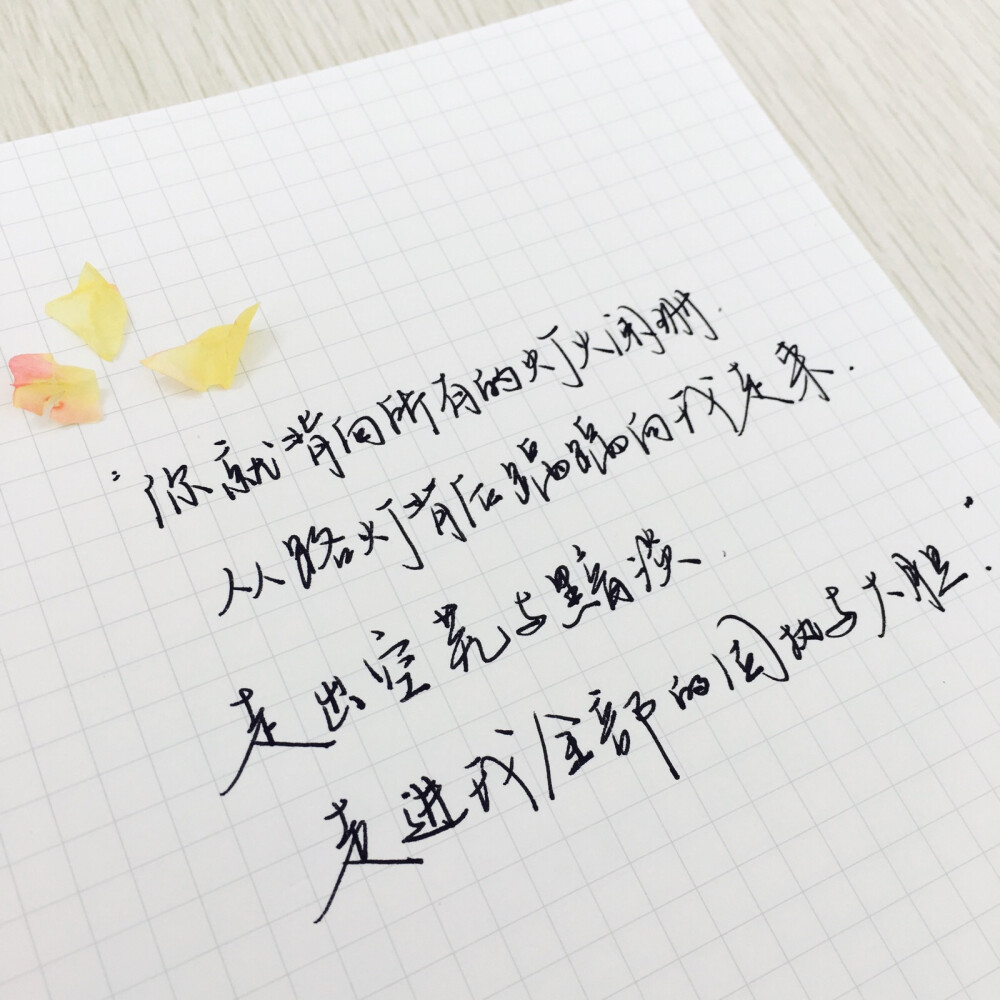 “你就背向所有的灯火阑珊.
从路灯背后踽踽向我走来.
走出空荒与黯淡.
走进我全部的固执与大胆.”